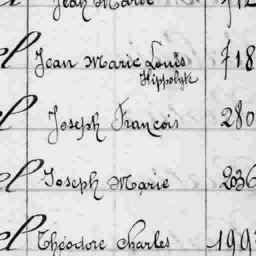 Jean Marie
el Jean Marie Louis 718
Hippolyte
el Joseph François 280
el Joseph Marie 2036
el Théodore Charles 199